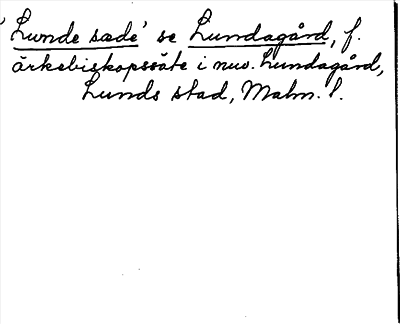 'Lunde sæde' se Lundagård, f.
ärkebiskopssäte i nuv. Lundagård,
Lunds stad, Malm. l.